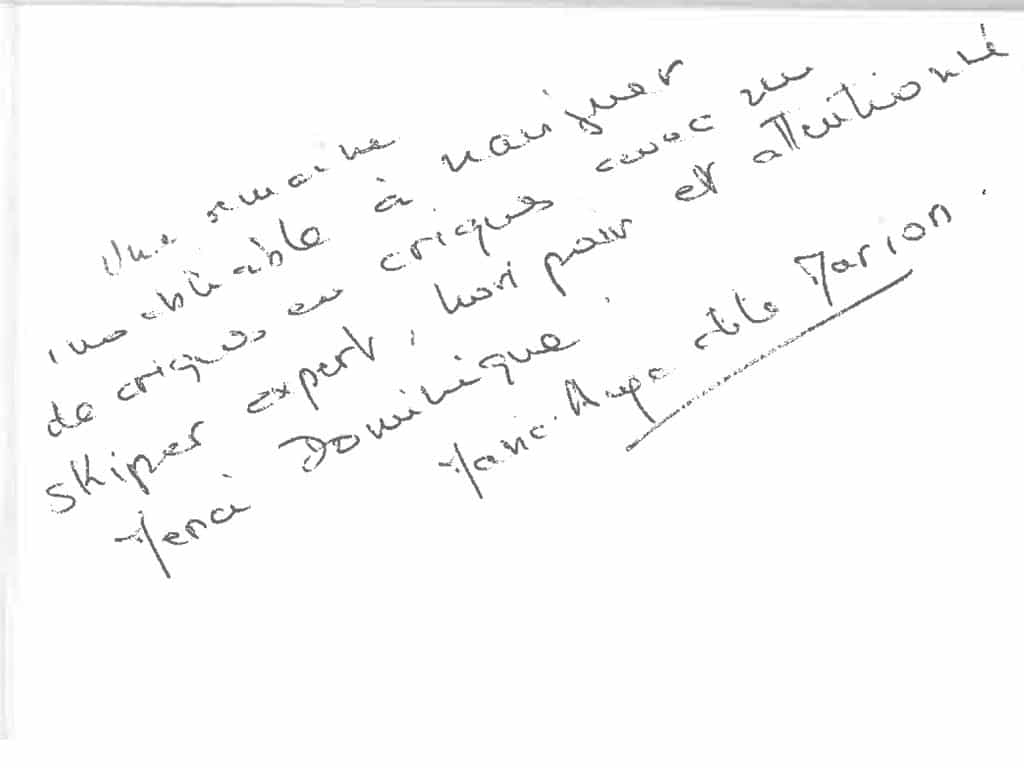 Une semaine
inoubliable à naviguer
de criques en criques avec un
skiper expert, hors pair et attentionné
Merci Dominique !
Marie-Ange Marion.